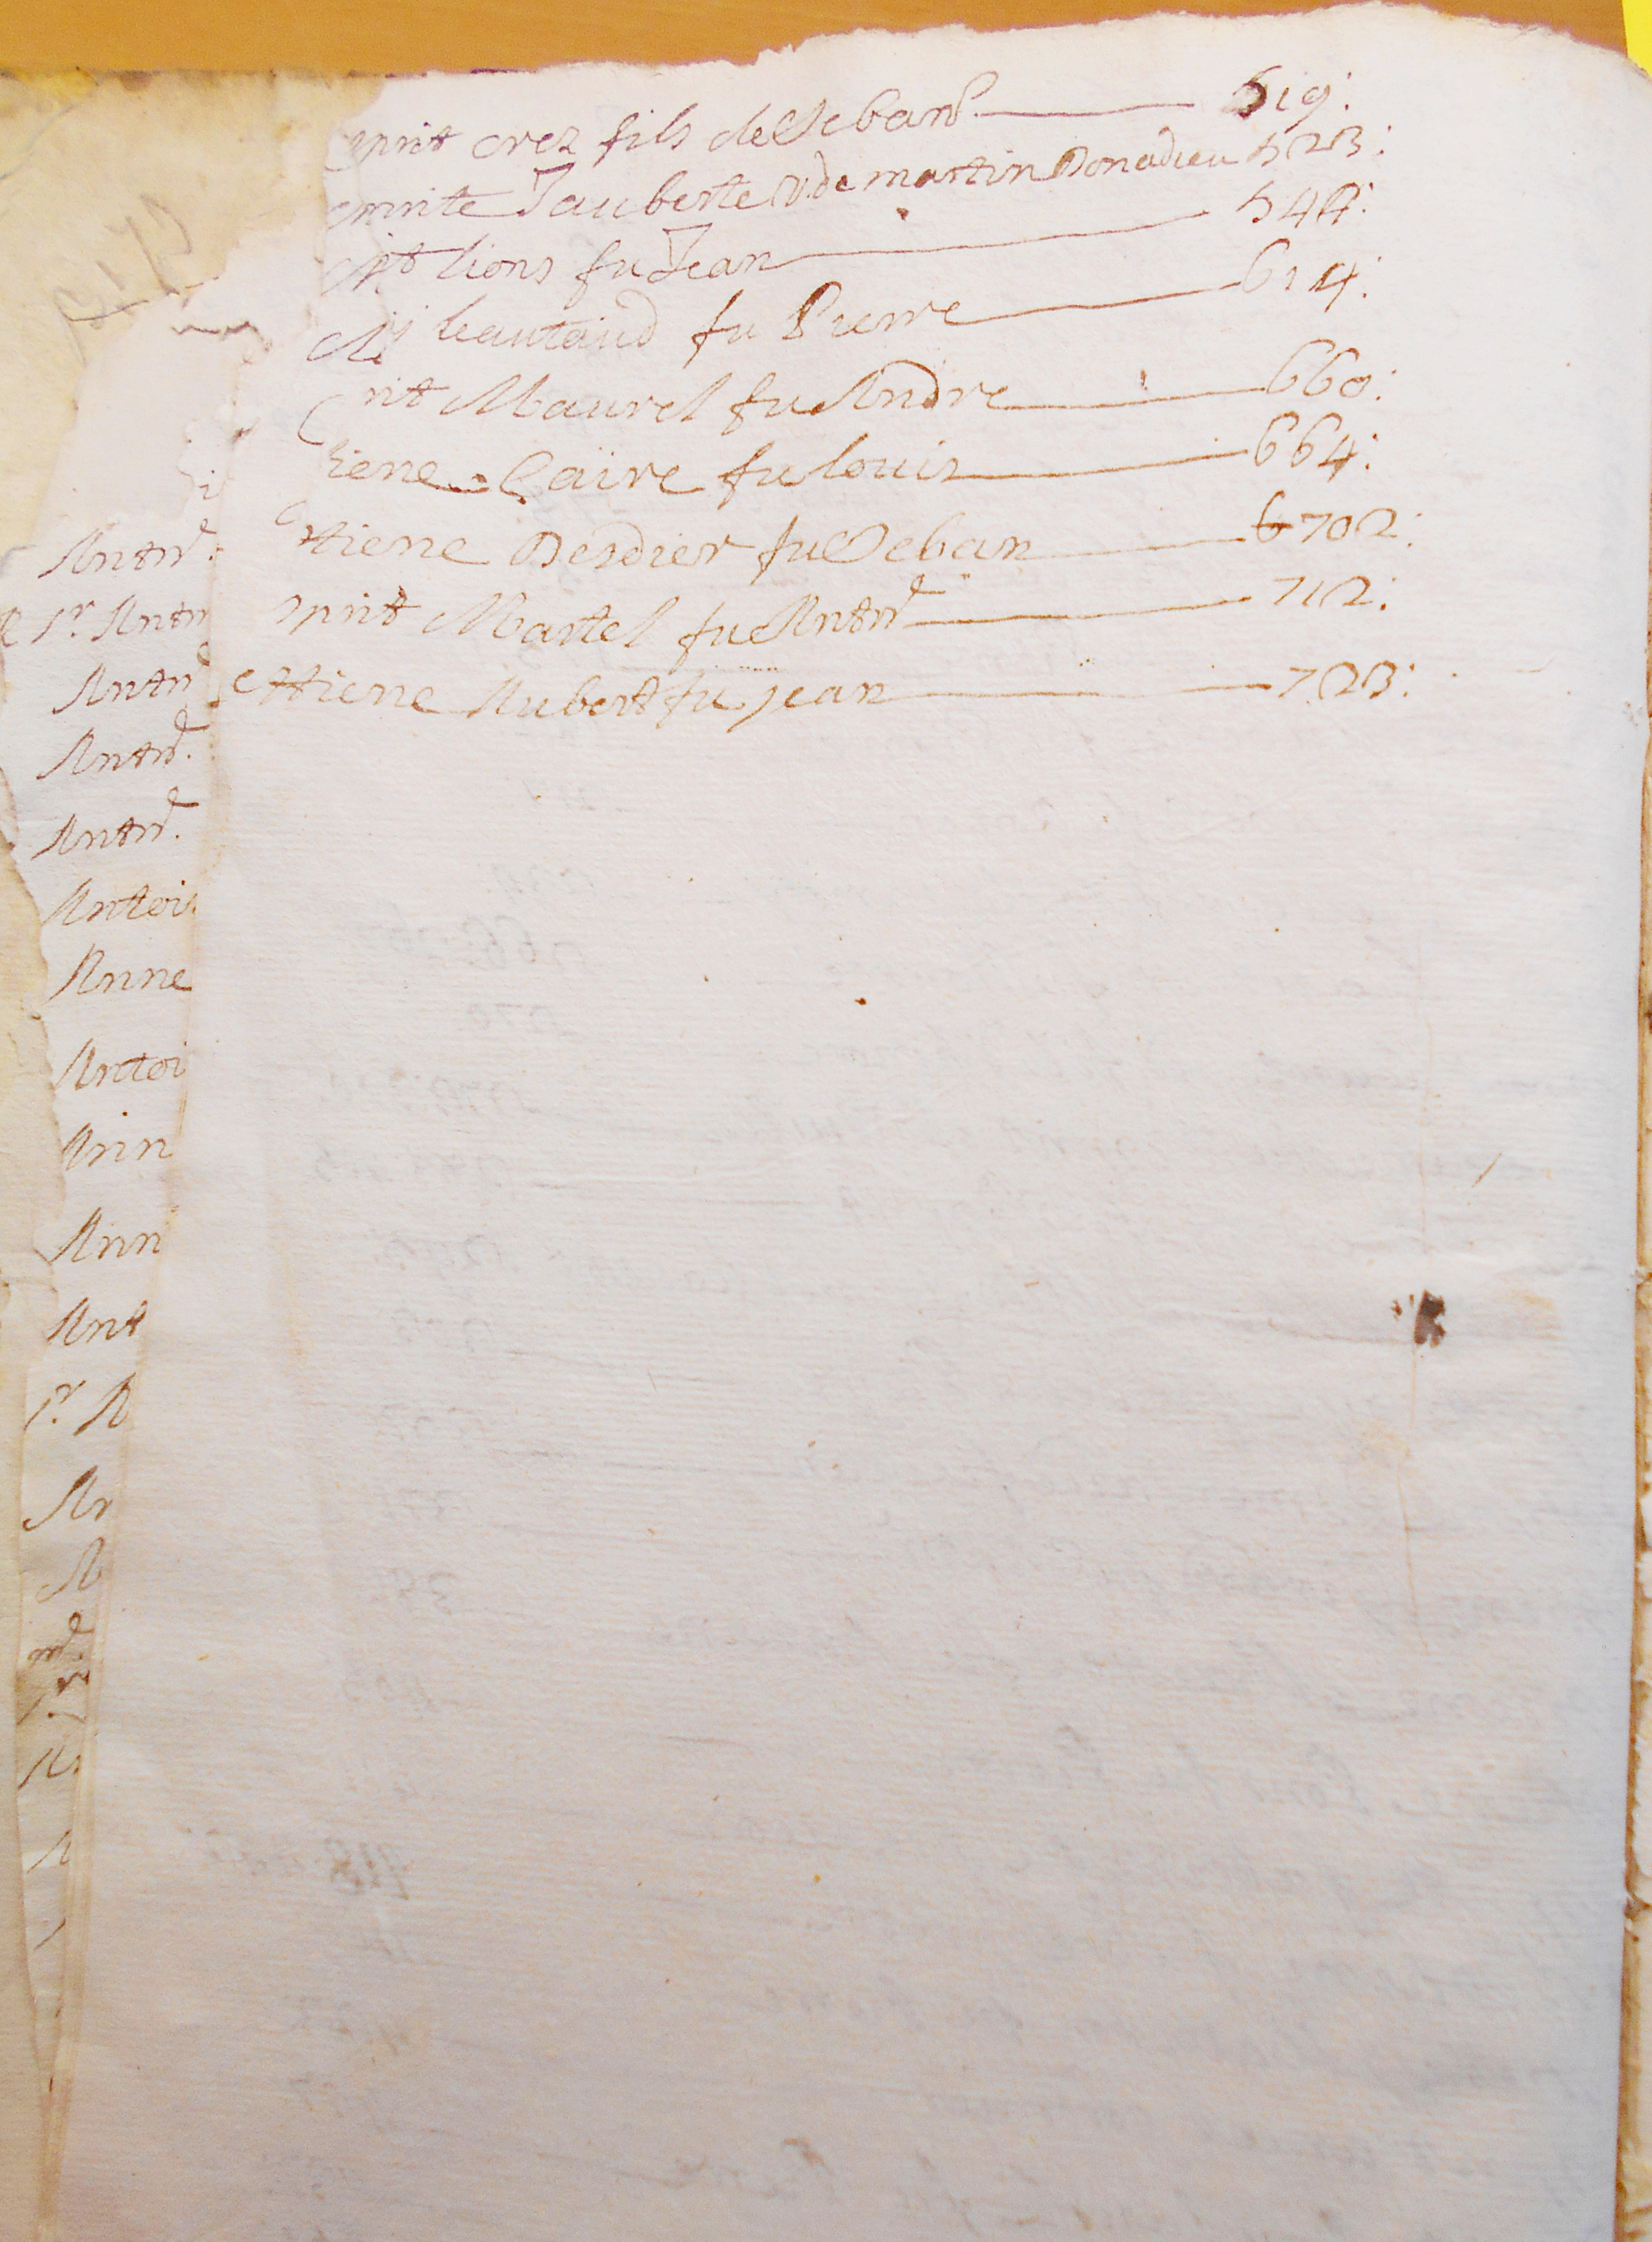 sprit orez fils de Seban 519:
sprite Jauberte V. de martin Donadieu 523:
lions fu Jean 544:
leautaud fu Pierre 614:
rit Maurel fu Andre 660:
tiene Caire fu louis 664:
tiene Desdier fu Seban 702:
sprit Martel fu Antne 712:
ettiene Aubert fu jean 723:
Antne
Sr. Antn
Antn
Antne.
Antne.
Antoi
Anne
Antoi
Ann
Ann
Ant
Sr. A
An
A